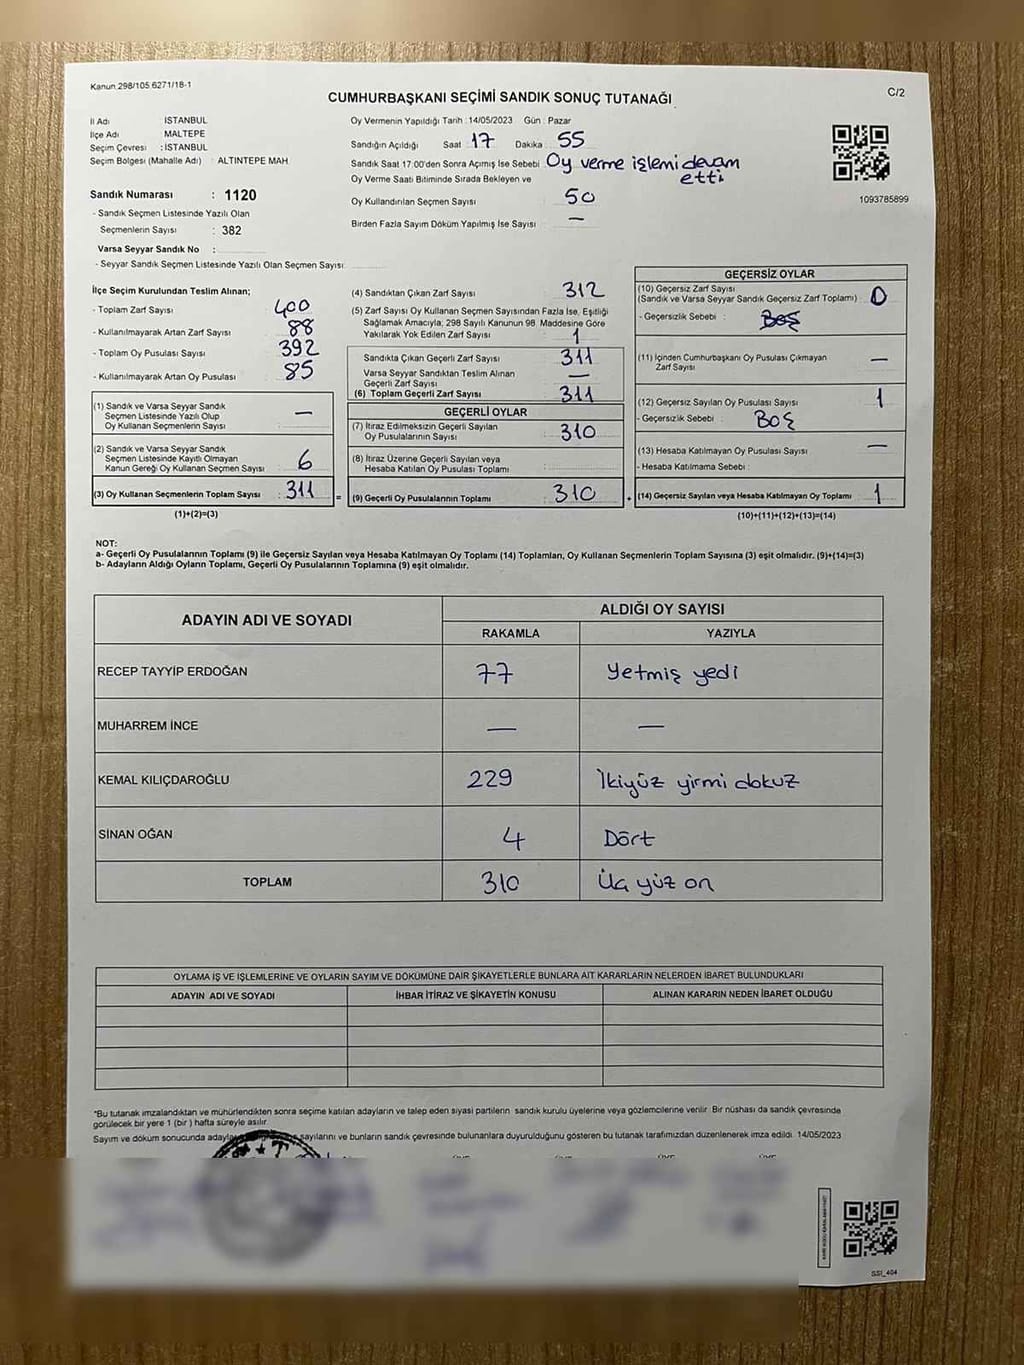 Kanun 298/105 6271/18-1
C/2
CUMHURBAŞKANI SEÇİMİ SANDIK SONUÇ TUTANAĞI
İl Adı İSTANBUL
İlçe Adı MALTEPE
Seçim Çevresi : İSTANBUL
Seçim Bölgesi (Mahalle Adı) : ALTINTEPE MAH.
Sandık Numarası : 1120
- Sandık Seçmen Listesinde Yazılı Olan
Seçmenlerin Sayısı : 382
Varsa Seyyar Sandık No :
- Seyyar Sandık Seçmen Listesinde Yazılı Olan Seçmen Sayısı:
Oy Vermenin Yapıldığı Tarih : 14/05/2023 Gün : Pazar
Sandığın Açıldığı Saat 17 Dakika 55
Sandık Saat 17:00'den Sonra Açımış İse Sebebi Oy verme işlemi devam
etti
Oy Verme Saati Bitiminde Sırada Bekleyen ve
Oy Kullandırılan Seçmen Sayısı 50
Birden Fazla Sayım Döküm Yapılmış İse Sayısı —
1093785899
İlçe Seçim Kurulundan Teslim Alınan;
- Toplam Zarf Sayısı : 400
- Kullanılmayarak Artan Zarf Sayısı : 88
- Toplam Oy Pusulası Sayısı : 392
- Kullanılmayarak Artan Oy Pusulası : 85
(1) Sandık ve Varsa Seyyar Sandık
Seçmen Listesinde Yazılı Olup
Oy Kullanan Seçmenlerin Sayısı : —
(2) Sandık ve Varsa Seyyar Sandık
Seçmen Listesinde Kayıtlı Olmayan
Kanun Gereği Oy Kullanan Seçmen Sayısı : 6
(3) Oy Kullanan Seçmenlerin Toplam Sayısı : 311
(1)+(2)=(3)
(4) Sandıktan Çıkan Zarf Sayısı : 312
(5) Zarf Sayısı Oy Kullanan Seçmen Sayısından Fazla İse, Eşitliği
Sağlamak Amacıyla; 298 Sayılı Kanunun 98. Maddesine Göre
Yakılarak Yok Edilen Zarf Sayısı : 1
Sandıkta Çıkan Geçerli Zarf Sayısı : 311
Varsa Seyyar Sandıktan Teslim Alınan
Geçerli Zarf Sayısı : —
(6) Toplam Geçerli Zarf Sayısı : 311
GEÇERLİ OYLAR
(7) İtiraz Edilmeksizin Geçerli Sayılan
Oy Pusulalarının Sayısı : 310
(8) İtiraz Üzerine Geçerli Sayılan veya
Hesaba Katılan Oy Pusulası Toplamı :
= (9) Geçerli Oy Pusulalarının Toplamı : 310
GEÇERSİZ OYLAR
(10) Geçersiz Zarf Sayısı
(Sandık ve Varsa Seyyar Sandık Geçersiz Zarf Toplamı) : 0
- Geçersizlik Sebebi : Boş
(11) İçinden Cumhurbaşkanı Oy Pusulası Çıkmayan
Zarf Sayısı : —
(12) Geçersiz Sayılan Oy Pusulası Sayısı : 1
- Geçersizlik Sebebi : Boş
(13) Hesaba Katılmayan Oy Pusulası Sayısı : —
- Hesaba Katılmama Sebebi :
(14) Geçersiz Sayılan veya Hesaba Katılmayan Oy Toplamı : 1
(10)+(11)+(12)+(13)=(14)
NOT:
a- Geçerli Oy Pusulalarının Toplamı (9) ile Geçersiz Sayılan veya Hesaba Katılmayan Oy Toplamı (14) Toplamları, Oy Kullanan Seçmenlerin Toplam Sayısına (3) eşit olmalıdır. (9)+(14)=(3)
b- Adayların Aldığı Oyların Toplamı, Geçerli Oy Pusulalarının Toplamına (9) eşit olmalıdır.
ADAYIN ADI VE SOYADI ALDIĞI OY SAYISI
RAKAMLA YAZIYLA
RECEP TAYYİP ERDOĞAN 77 Yetmiş yedi
MUHARREM İNCE — —
KEMAL KILIÇDAROĞLU 229 İkiyüz yirmi dokuz
SİNAN OĞAN 4 Dört
TOPLAM 310 Üç yüz on
OYLAMA İŞ VE İŞLEMLERİNE VE OYLARIN SAYIM VE DÖKÜMÜNE DAİR ŞİKAYETLERLE BUNLARA AİT KARARLARIN NELERDEN İBARET BULUNDUKLARI
ADAYIN ADI VE SOYADI İHBAR İTİRAZ VE ŞİKAYETİN KONUSU ALINAN KARARIN NEDEN İBARET OLDUĞU
*Bu tutanak imzalandıktan ve mühürlendikten sonra seçime katılan adayların ve talep eden siyasi partilerin sandık kurulu üyelerine veya gözlemcilerine verilir. Bir nüshası da sandık çevresinde
görülecek bir yere 1 (bir) hafta süreyle asılır.
Sayım ve döküm sonucunda sayılarını ve bunların sandık çevresinde bulunanlara duyurulduğunu gösteren bu tutanak tarafımızdan düzenlenerek imza edildi. 14/05/2023
SSI_404